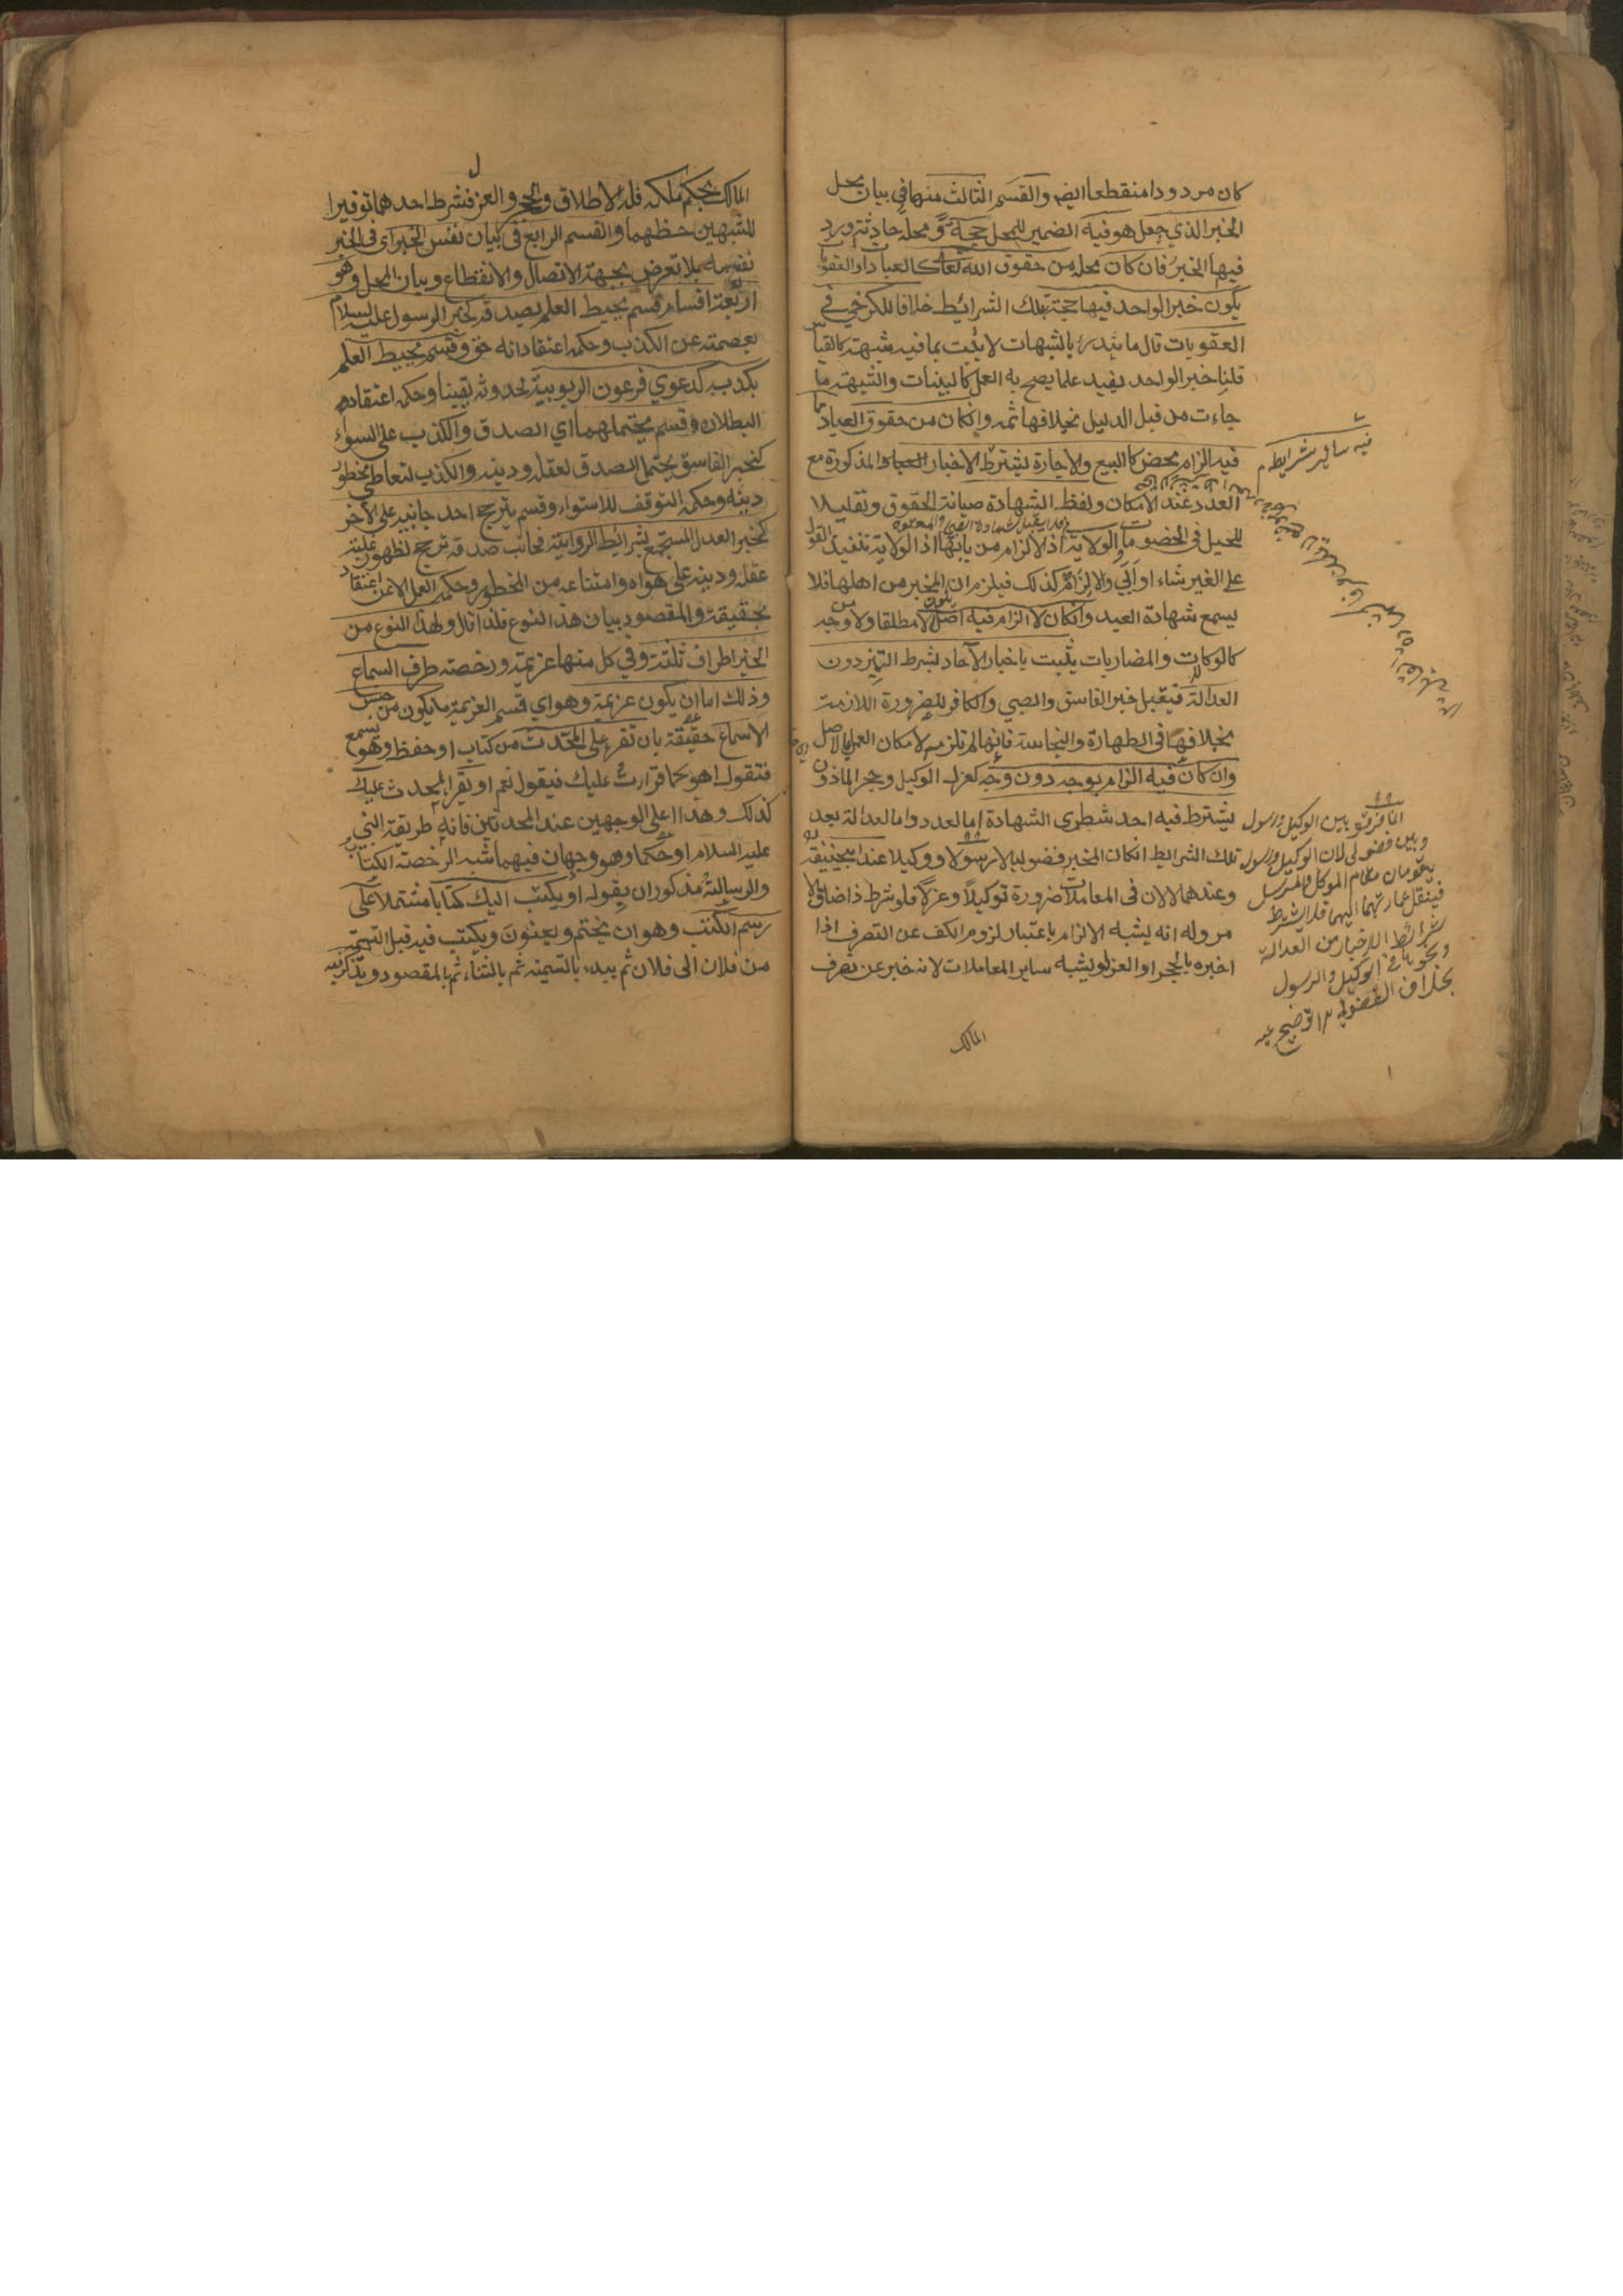 كان مردودا منقطعا ايضا والقسم الثالث منها في بيان محل
الخبر الذي جعل هو فيه الضمير للمحل حجة ومحله حادثة ورد
فيها الخبر فان كان محله من حقوق الله تعالى كالعبادا والعقوبا
يكون خبر الواحد فيها حجة بتلك الشرائيط خلافا للكرخي في
العقوبات قال ما يندرئ بالشبهات لا يثبت بما فيه شبهة كالقياس
قلنا خبر الواحد يفيد علما يصح به العمل كالبينات والشبهة ما
جاءت من قبل الدليل بخلافها ثمه وانكان من حقوق العباد مما
فيه الزام محض كالبيع والاجارة يشترط الاخبار المذكورة مع
العدد عند الامكان ولفظ الشهادة صيانة الحقوق وتقليلا
للحيل في الخضومات والولاية اذ الالزام من بابها اذ الولاية تنفيذ القول
على الغير شاء او ابي والالزام كذلك فيلزم ان المخبر من اهلها فلا
يسمع شهادة العبد وانكان لا الزام فيه اصلا مطلقا ولا من وجه
كالوكات والمضاربات يثبت باخبار الآحاد بشرط التميز دون
العدالة فيقبل خبر الفاسق والصبي والكافر للضرورة اللازمة
بخلافها في الطهارة والنجاسة فانها لم تلزم لامكان العمل بالاصل
وان كان فيه الزام بوجه دون وجه كعزل الوكيل وحجر الماذون
يشترط فيه احد شطرى الشهادة اما العدد واما العدالة بعد
تلك الشرايط انكان المخبر فضوليا لا رسولا ووكيلا عند ابيحنيفة
وعندهما لا لان في المعاملات ضرورة توكيلا وعزلا فلو شرط ذا ضاق الا
مر وله انه يشبه الالزام باعتبار لزوم الكف عن التصرف اذا
اخبره بالحجر او العزل ويشبه ساير المعاملات لانه خبر عن تصرف
المالك
فيه ساير شرايط
انما فرق بين الوكيل ورسول
وبين فضولي لان الوكيل ورسول
يقومان مقام الموكل والمرسل
فينقل عبارتهما اليهما فلا يشترط
شرائط الاخبار من العدالة
ونحوها في الوكيل والرسول
بخلاف الفضولي توضيح
المالك بحكم ملكه فله الاطلاق والحجر والعزل فشرط احدهما توفيرا
للشبهين حظهما والقسم الرابع في بيان نفس الخبر اى في الخبر
نفسه بلا تعرض بجهة الاتصال والانقطاع وبيان المحل وهو
اربعة اقسام قسم يحيط العلم بصدقه كخبر الرسول عليه السلام
بعصمته عن الكذب وحكمه اعتقاد انه حق وقسم يحيط العلم
بكذبه كدعوي فرعون الربوبية لحدوثه يقينا وحكمه اعتقاد
البطلان وقسم يحتملهما اي الصدق والكذب على السواء
كخبر الفاسق يحتمل الصدق لعقله ودينه والكذب لتعاطي محظور
دينه وحكمه التوقف للاستواء وقسم يترجح احد جانبيه على الآخر
كخبر العدل المستجمع بشرائط الرواية فجانب صدقه ترجح لظهور غلبة
عقله ودينه على هواه وامتناعه من المحظور وحكمه العمل لا عن اعتقاد
بحقيقته والمقصود بيان هذا النوع فلذا قال ولهذا النوع من
الخبر اطراف ثلثة وفي كل منها عزيمة ورخصة طرف السماع
وذلك اما ان يكون عزيمة وهو اي قسم العزيمة ما يكون من جنس
الاسماع حقيقة بان تقرء على المحدث من كتاب او حفظ وهو يسمع
فتقول اهو كما قرات عليك فيقول نعم او يقرأ المحدث عليك
كذلك وهذا اعلى الوجهين عند المحدثين فانه طريقة النبي
عليه السلام او حكما وهو وجهان فيهما شبه الرخصة الكتاب
والرسالة مذكوران بقوله او يكتب اليك كتابا مشتملا على
رسم الكتب وهو ان يختم ويعنون ويكتب فيه قبل التسمية
من فلان الى فلان ثم يبدء بالتسمية ثم بالثناء ثم بالمقصود ويذكر فيه